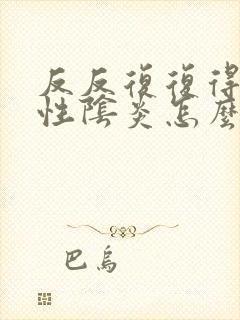 反反復復得
性陰炎怎麼
巴烏